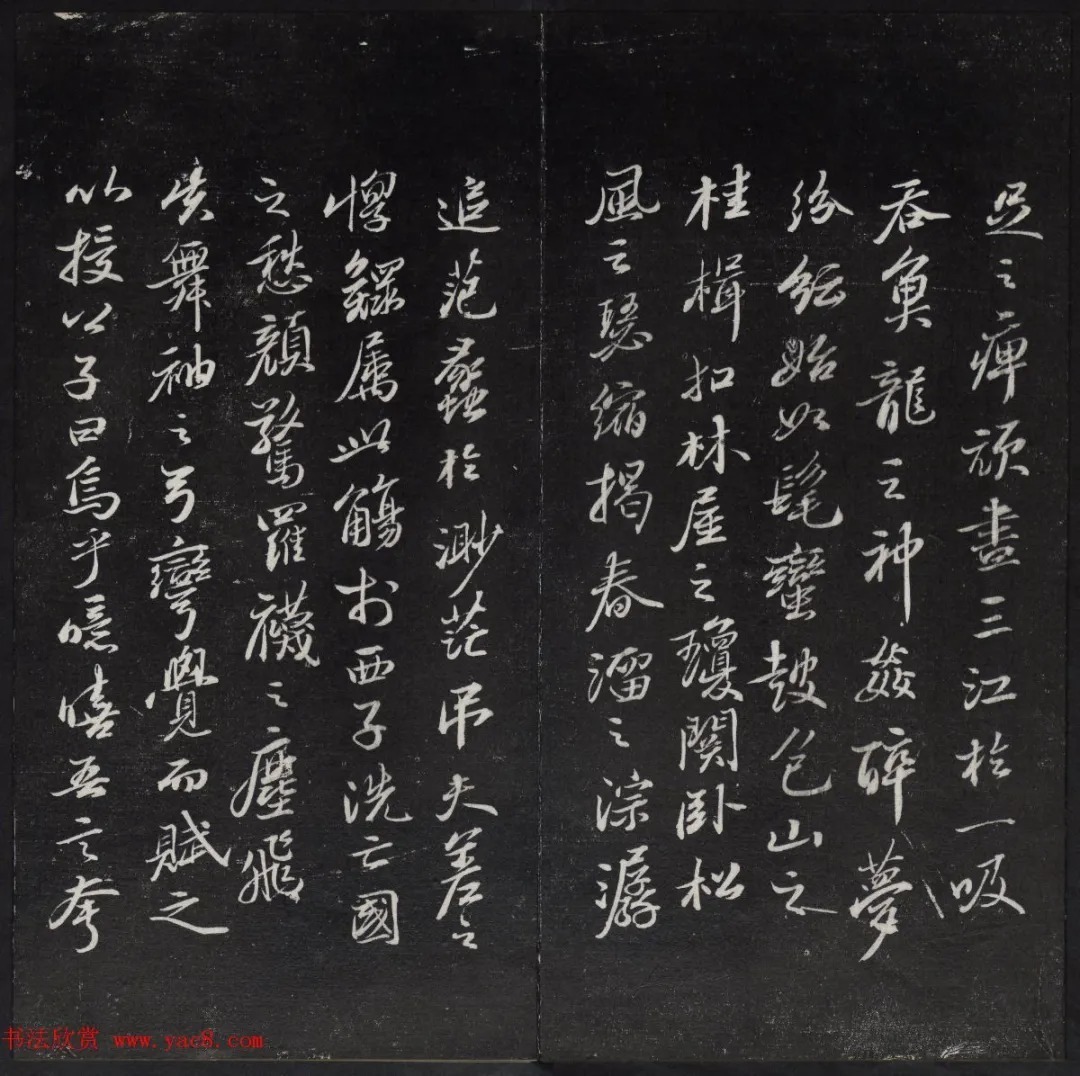 足之痺頑盡三江於一吸
吞魚龍之神姦醉夢
紛紜始如髦蠻鼓包山之
桂楫扣林屋之瓊關卧松
風之瑟縮揭春溜之淙潺
追范蠡於渺茫吊夫差之
惸鰥属此觴於西子洗亡國
之愁顏驚羅襪之塵飛
失舞袖之弓彎覺而賦之
以授公子曰烏乎噫嘻吾言夸
书法欣赏 www.yac8.com